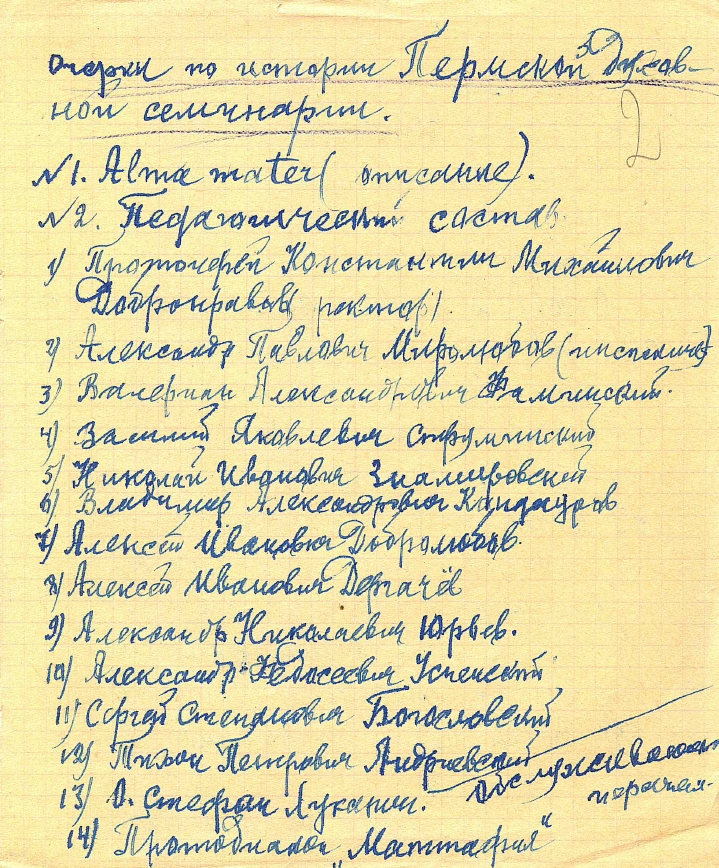 Очерки по истории Пермской духов-
ной семинарии.
2
№1. Alma mater (описание).
№2. Педагогический состав.
1) Протоиерей Константин Михайлович
Добронравов (ректор).
2) Александр Павлович Миролюбов (инспектор)
3) Валериан Александрович Фаминский.
4) Василий Яковлевич Струминский
5) Николай Иванович Знамировский
6) Владимир Александрович Кандауров
7) Алексей Иванович Добролюбов.
8) Алексей Иванович Дергачёв
9) Александр Николаевич Юрьев.
10) Александр Федосеевич Успенский
11) Сергей Степанович Богословский
12) Тихон Петрович Андриевский
13) О. Стефан Луканин. Обслуживающий
персонал.
14) Протодиакон „Маттафия“